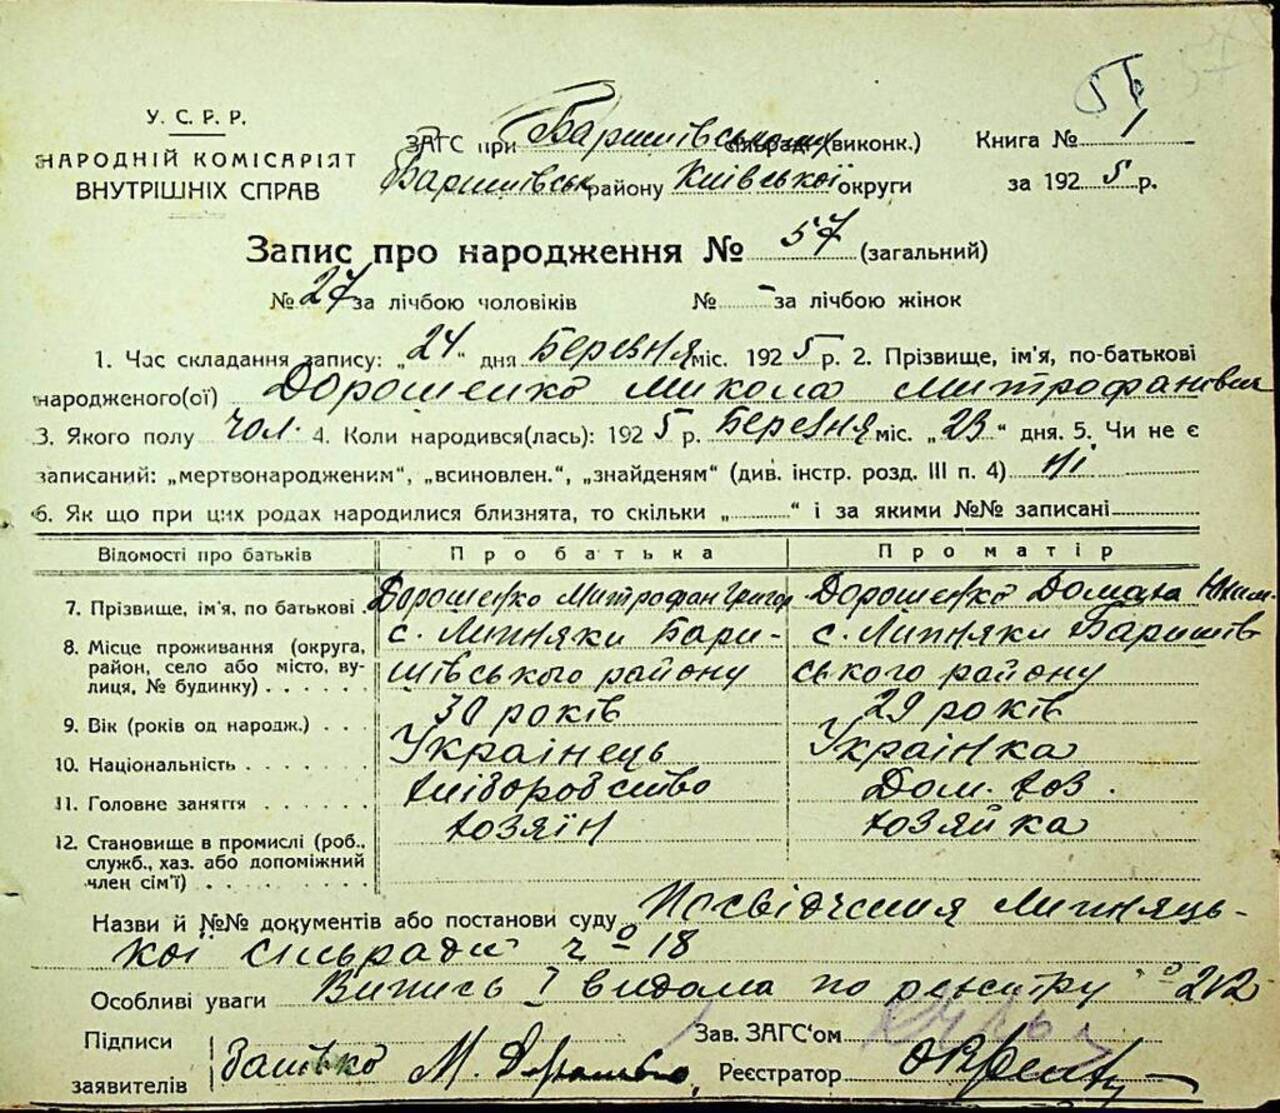 У. С. Р. Р.
НАРОДНІЙ КОМІСАРІЯТ
ВНУТРІШНІХ СПРАВ
ЗАГС при Баришівському (виконк.)
Баришівськ району Київської округи
Книга № 1
за 1925 р.
Запис про народження № 57 (загальний)
№ 27 за лічбою чоловіків № - за лічбою жінок
1. Час складання запису: „24“ дня Березня міс. 1925 р. 2. Прізвище, ім'я, по-батькові
народженого(ої) Дорошенко Микола Митрофанович
3. Якого полу чол. 4. Коли народився(лась): 1925 р. Березня міс. „23“ дня. 5. Чи не є
записаний: „мертвонародженим“, „всиновлен.“, „знайденям“ (див. інстр. розд. III п. 4) ні
6. Як що при цих родах народилися близнята, то скільки „ “ і за якими №№ записані
Відомості про батьків Про батька Про матір
7. Прізвище, ім'я, по батькові Дорошенко Митрофан Григор Дорошенко Домаха
8. Місце проживання (округа, район, село або місто, вулиця, № будинку) с. Лихняки Бари- с. Лихняки Баришів
шівського району ського району
9. Вік (років од народж.) 30 років 29 років
10. Національність Українець Українка
11. Головне заняття хліборобство Дом. хоз.
12. Становище в промислі (роб., служб., хаз. або допоміжний член сім'ї) хозяїн хозяйка
Назви й №№ документів або постанови суду Посвідчення Лихняць-
кої сільради ч 18
Особливі уваги Випись І видана по реєстру 212
Підписи
заявителів батько М. Дорошенко
Зав. ЗАГС'ом
Реєстратор